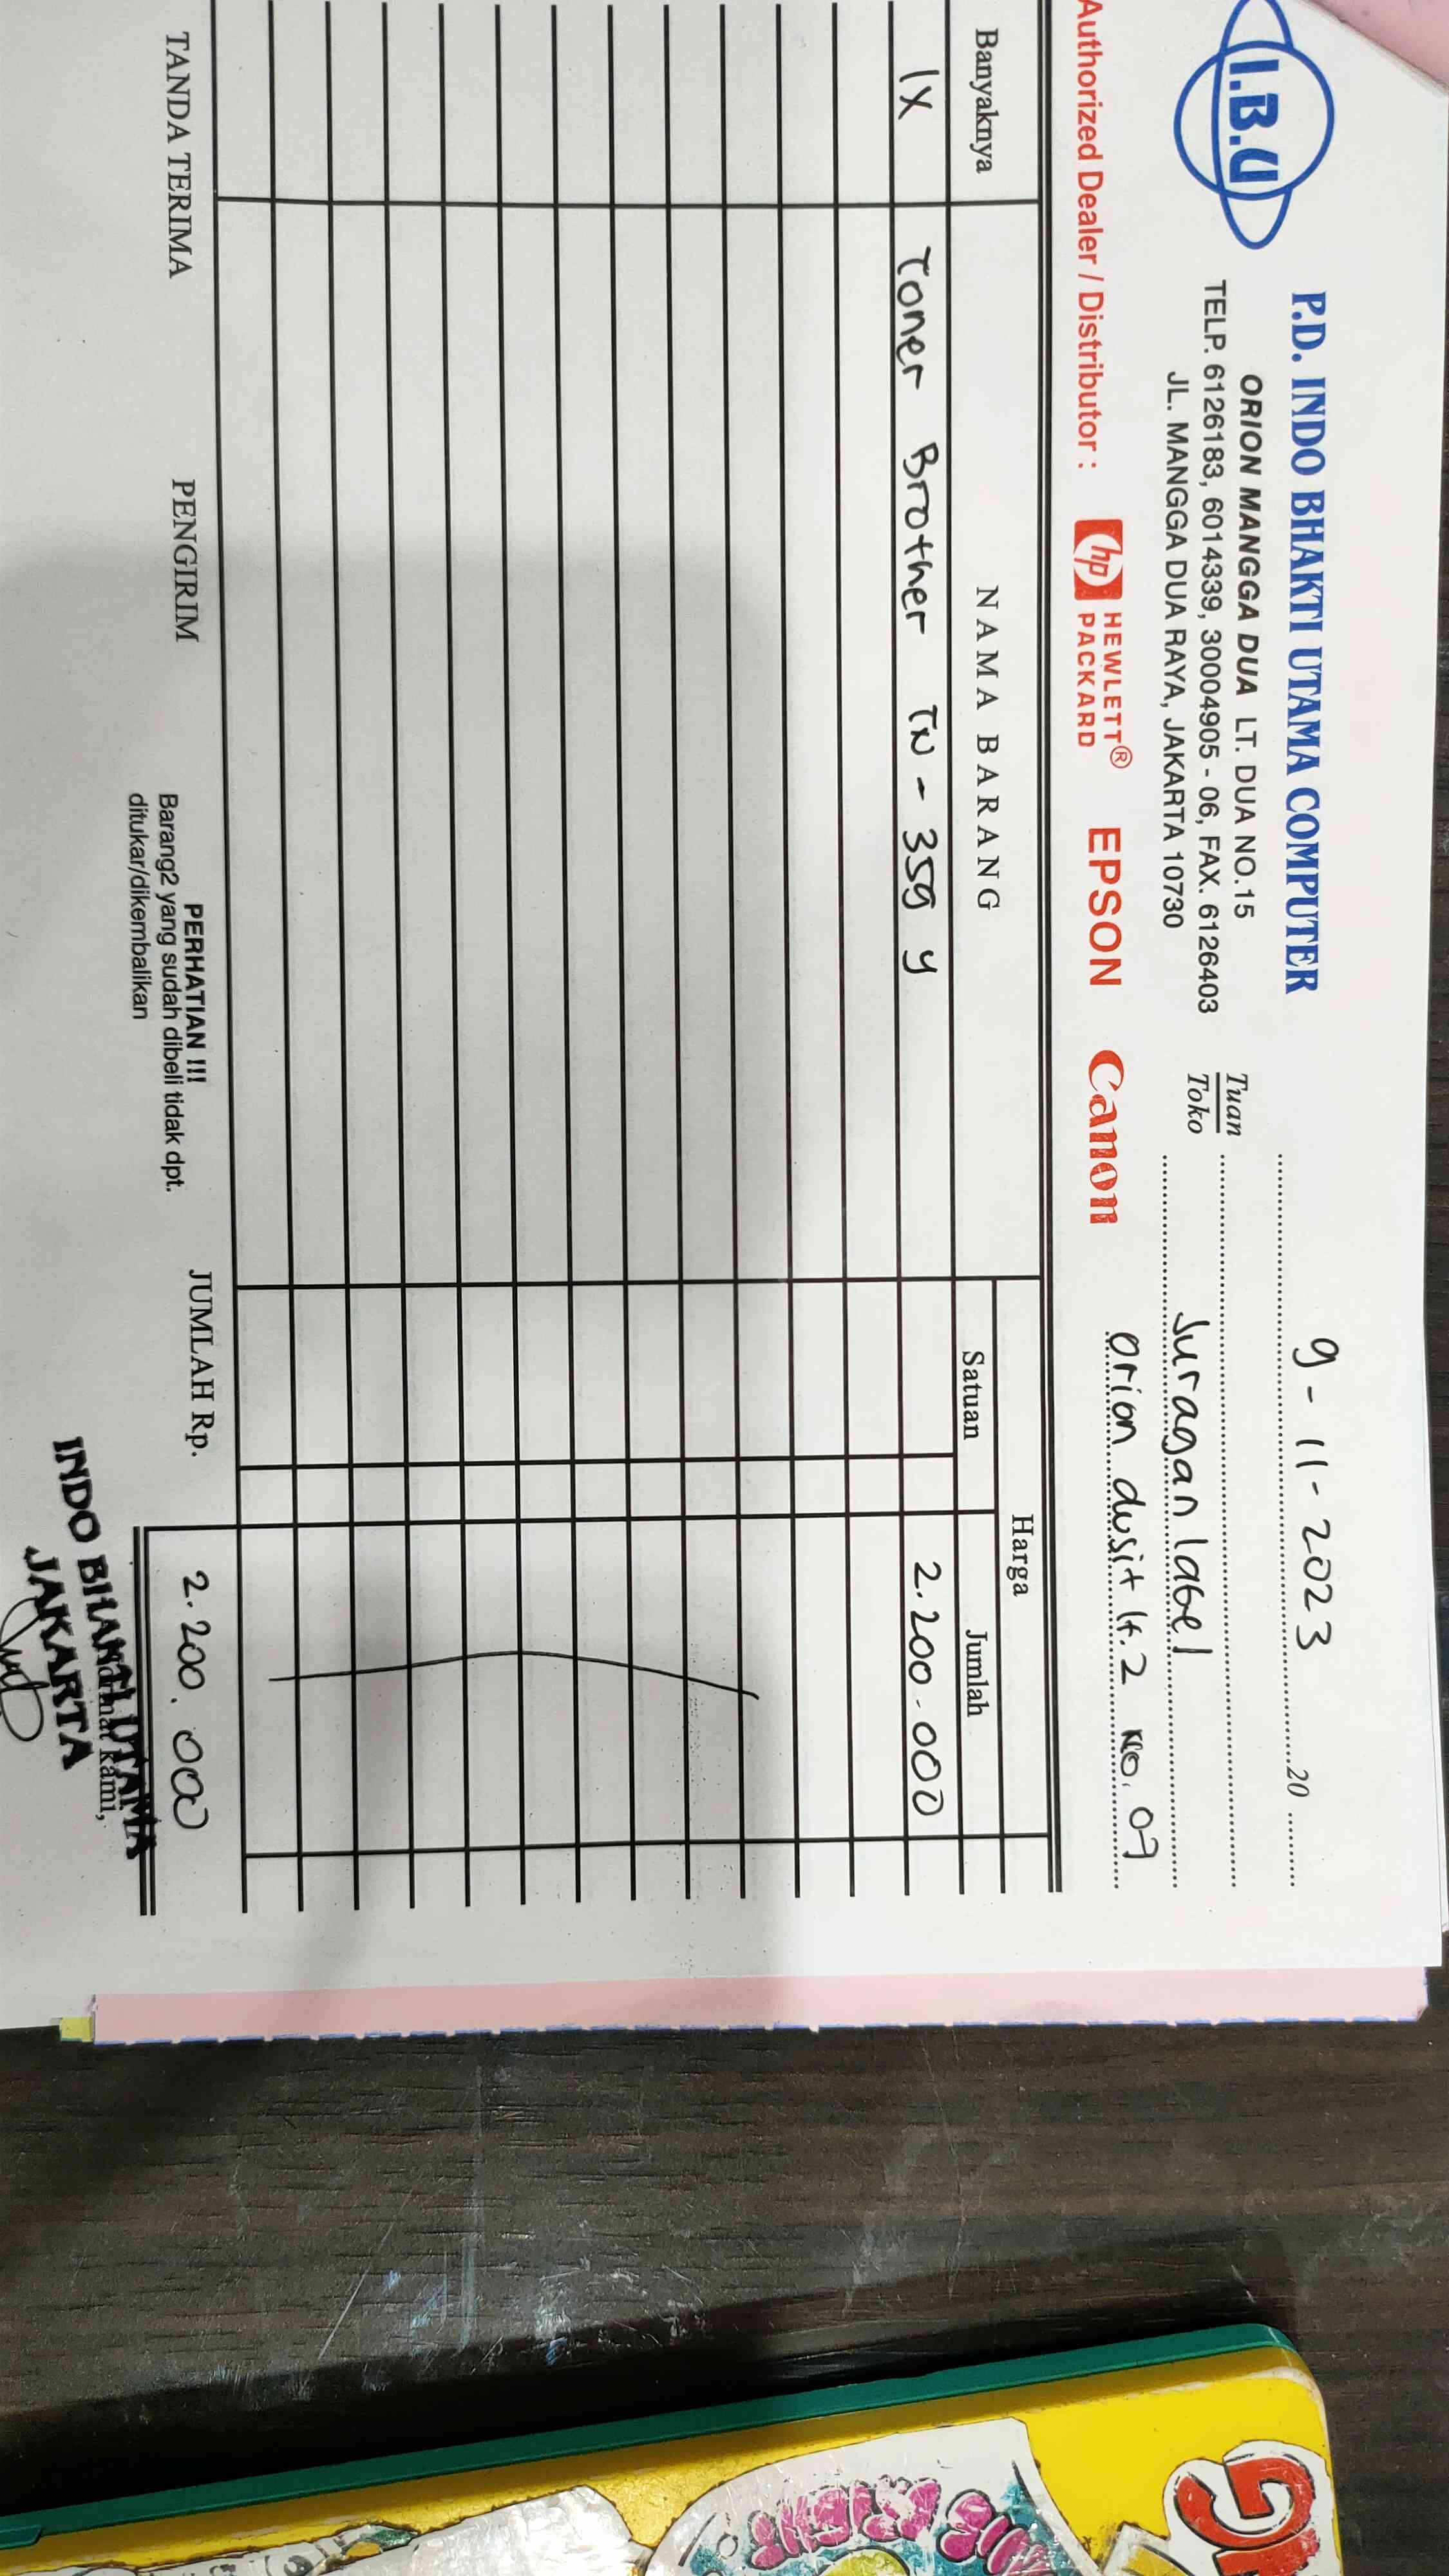 I.B.U
P.D. INDO BHAKTI UTAMA COMPUTER
ORION MANGGA DUA LT. DUA NO.15
TELP. 6126183, 6014339, 30004905 - 06, FAX. 6126403
JL. MANGGA DUA RAYA, JAKARTA 10730
9-11-2023 20
Tuan
Toko
Juragan label
orion dusit lt.2 No. 09
Authorized Dealer / Distributor : hp HEWLETT® PACKARD EPSON Canon
Banyaknya NAMA BARANG Harga
Satuan Jumlah
1X Toner Brother TN - 359 y 2.200.000
TANDA TERIMA PENGIRIM JUMLAH Rp. 2.200.000
PERHATIAN !!!
Barang2 yang sudah dibeli tidak dpt.
ditukar/dikembalikan
kami,
INDO BHAKTI UTAMA
JAKARTA